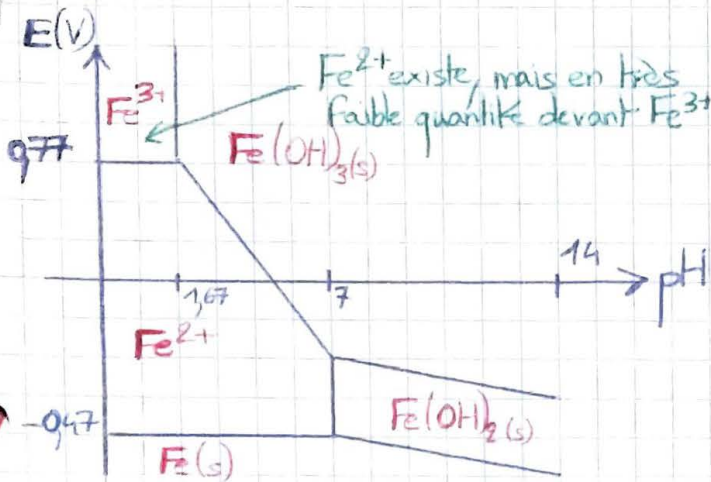 E(V)
Fe²⁺ existe, mais en très
faible quantité devant Fe³⁺
Fe³⁺
0,77
Fe(OH)₃(s)
14
1,67
7
pH
Fe²⁺
-0,47
Fe(OH)₂(s)
Fe(s)